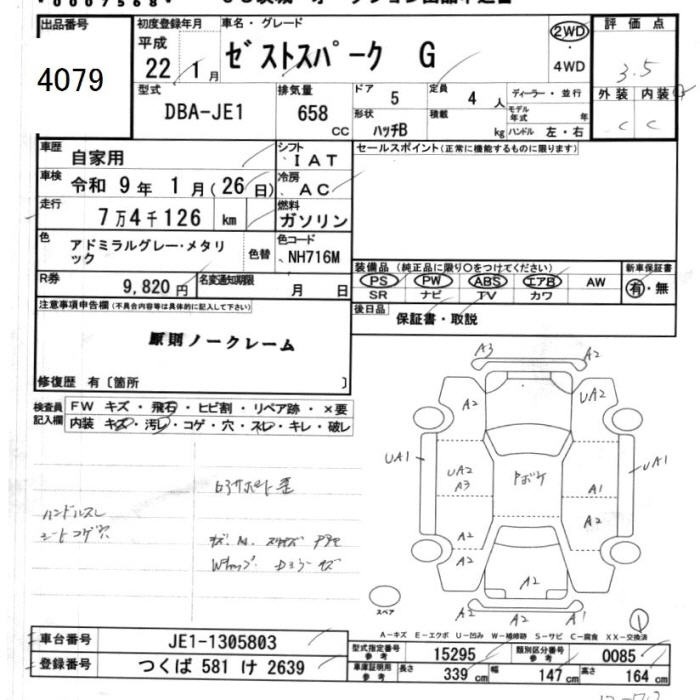 出品番号
4079
初度登録年月
平成 22 1月
車名・グレード
ゼストスパーク G
2WD
・
4WD
評価点
3.5
型式
DBA-JE1
排気量
658 CC
ドア 5
定員 4 人
ディーラー・並行
形状 ハッチB
積載 kg
モデル年式 年
ハンドル 左・右
外装 内装
C C
車歴 自家用
シフト IAT
セールスポイント(正常に機能するものに限ります)
車検 令和 9年 1月(26日)
冷房 AC
走行 7万4千126 km
燃料 ガソリン
色 アドミラルグレー・メタリック
色替
色コード NH716M
装備品(純正品に限り○をつけてください)
新車保証書
PS PW ABS エアB AW
有・無
SR ナビ TV カワ
R券 9,820円
名変通知期限 月 日
後日品 保証書・取説
注意事項申告欄(不具合内容等は具体的に記入して下さい)
原則ノークレーム
修復歴 有〔箇所 〕
検査員記入欄
FW キズ・飛石・ヒビ割・リペア跡・×要
内装 キズ・汚レ・コゲ・穴・スレ・キレ・破レ
ハンドルスレ
シートコゲ穴
A3 A2
A2 UA2
UA1 UA2 A3 A1 UA1
A2 A2
A2 A2
A2
A2 A2 A1
スペア
A-キズ E-エクボ U-凹み W-補修跡 S-サビ C-腐食 XX-交換済
1
車台番号 JE1-1305803
型式指定番号 参考 15295
類別区分番号 参考 0085
登録番号 つくば 581 け 2639
車庫証明用 参考 長さ 339 cm 幅 147 cm 高さ 164 cm